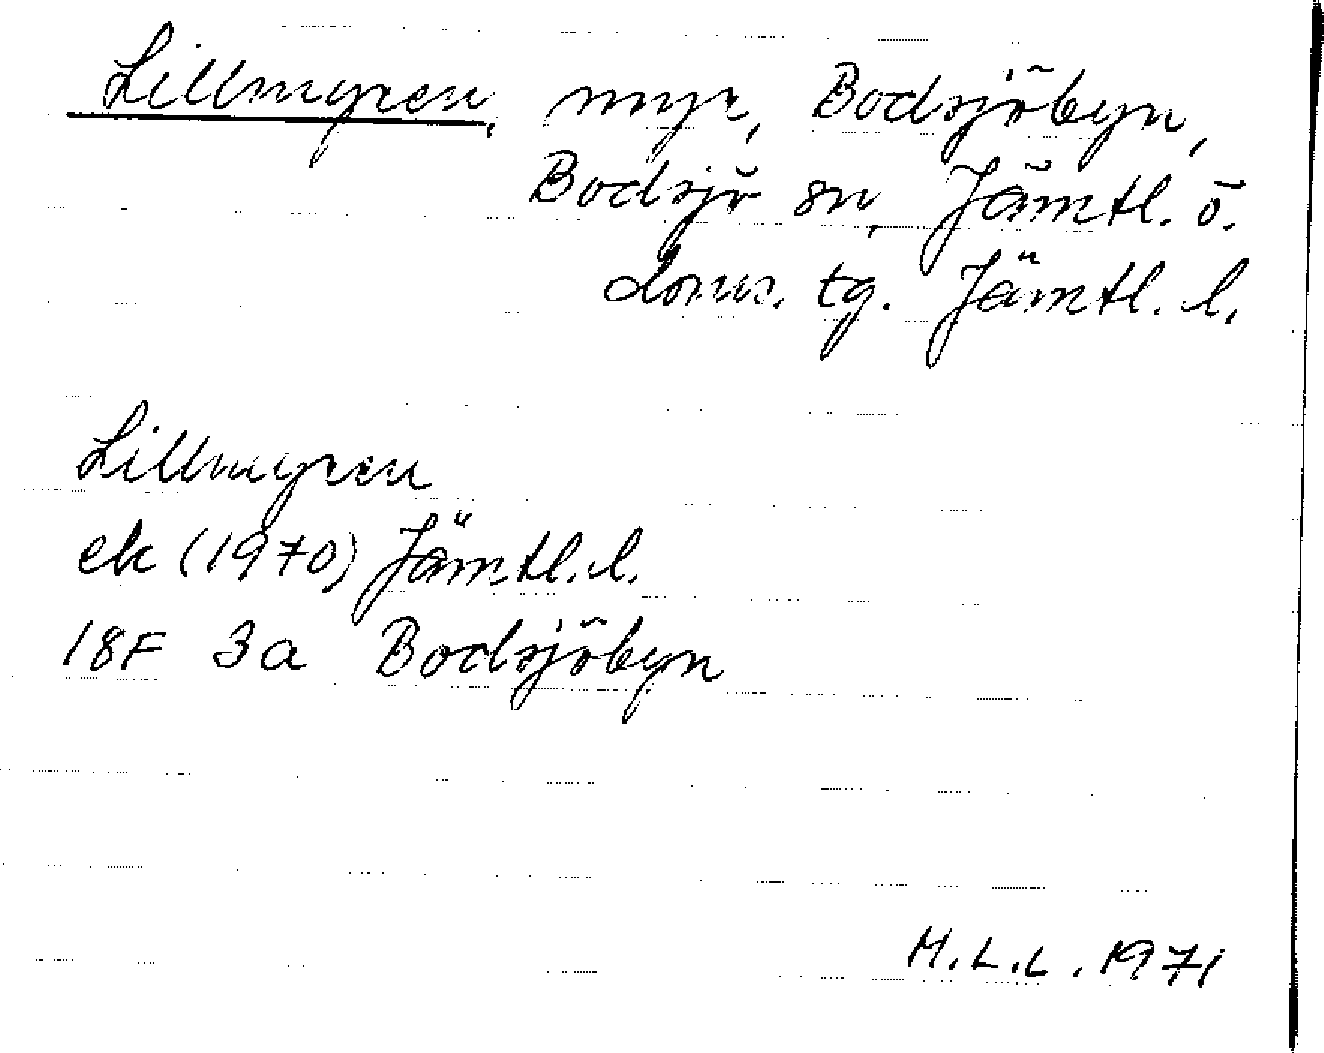 Lillmyren, myr, Bodsjöbyn,
Bodsjö sn, Jämtl. ö.
doms. tg. Jämtl. l.
Lillmyren
ek (1970) Jämtl. l.
18F 3a Bodsjöbyn
M.L.L. 1971